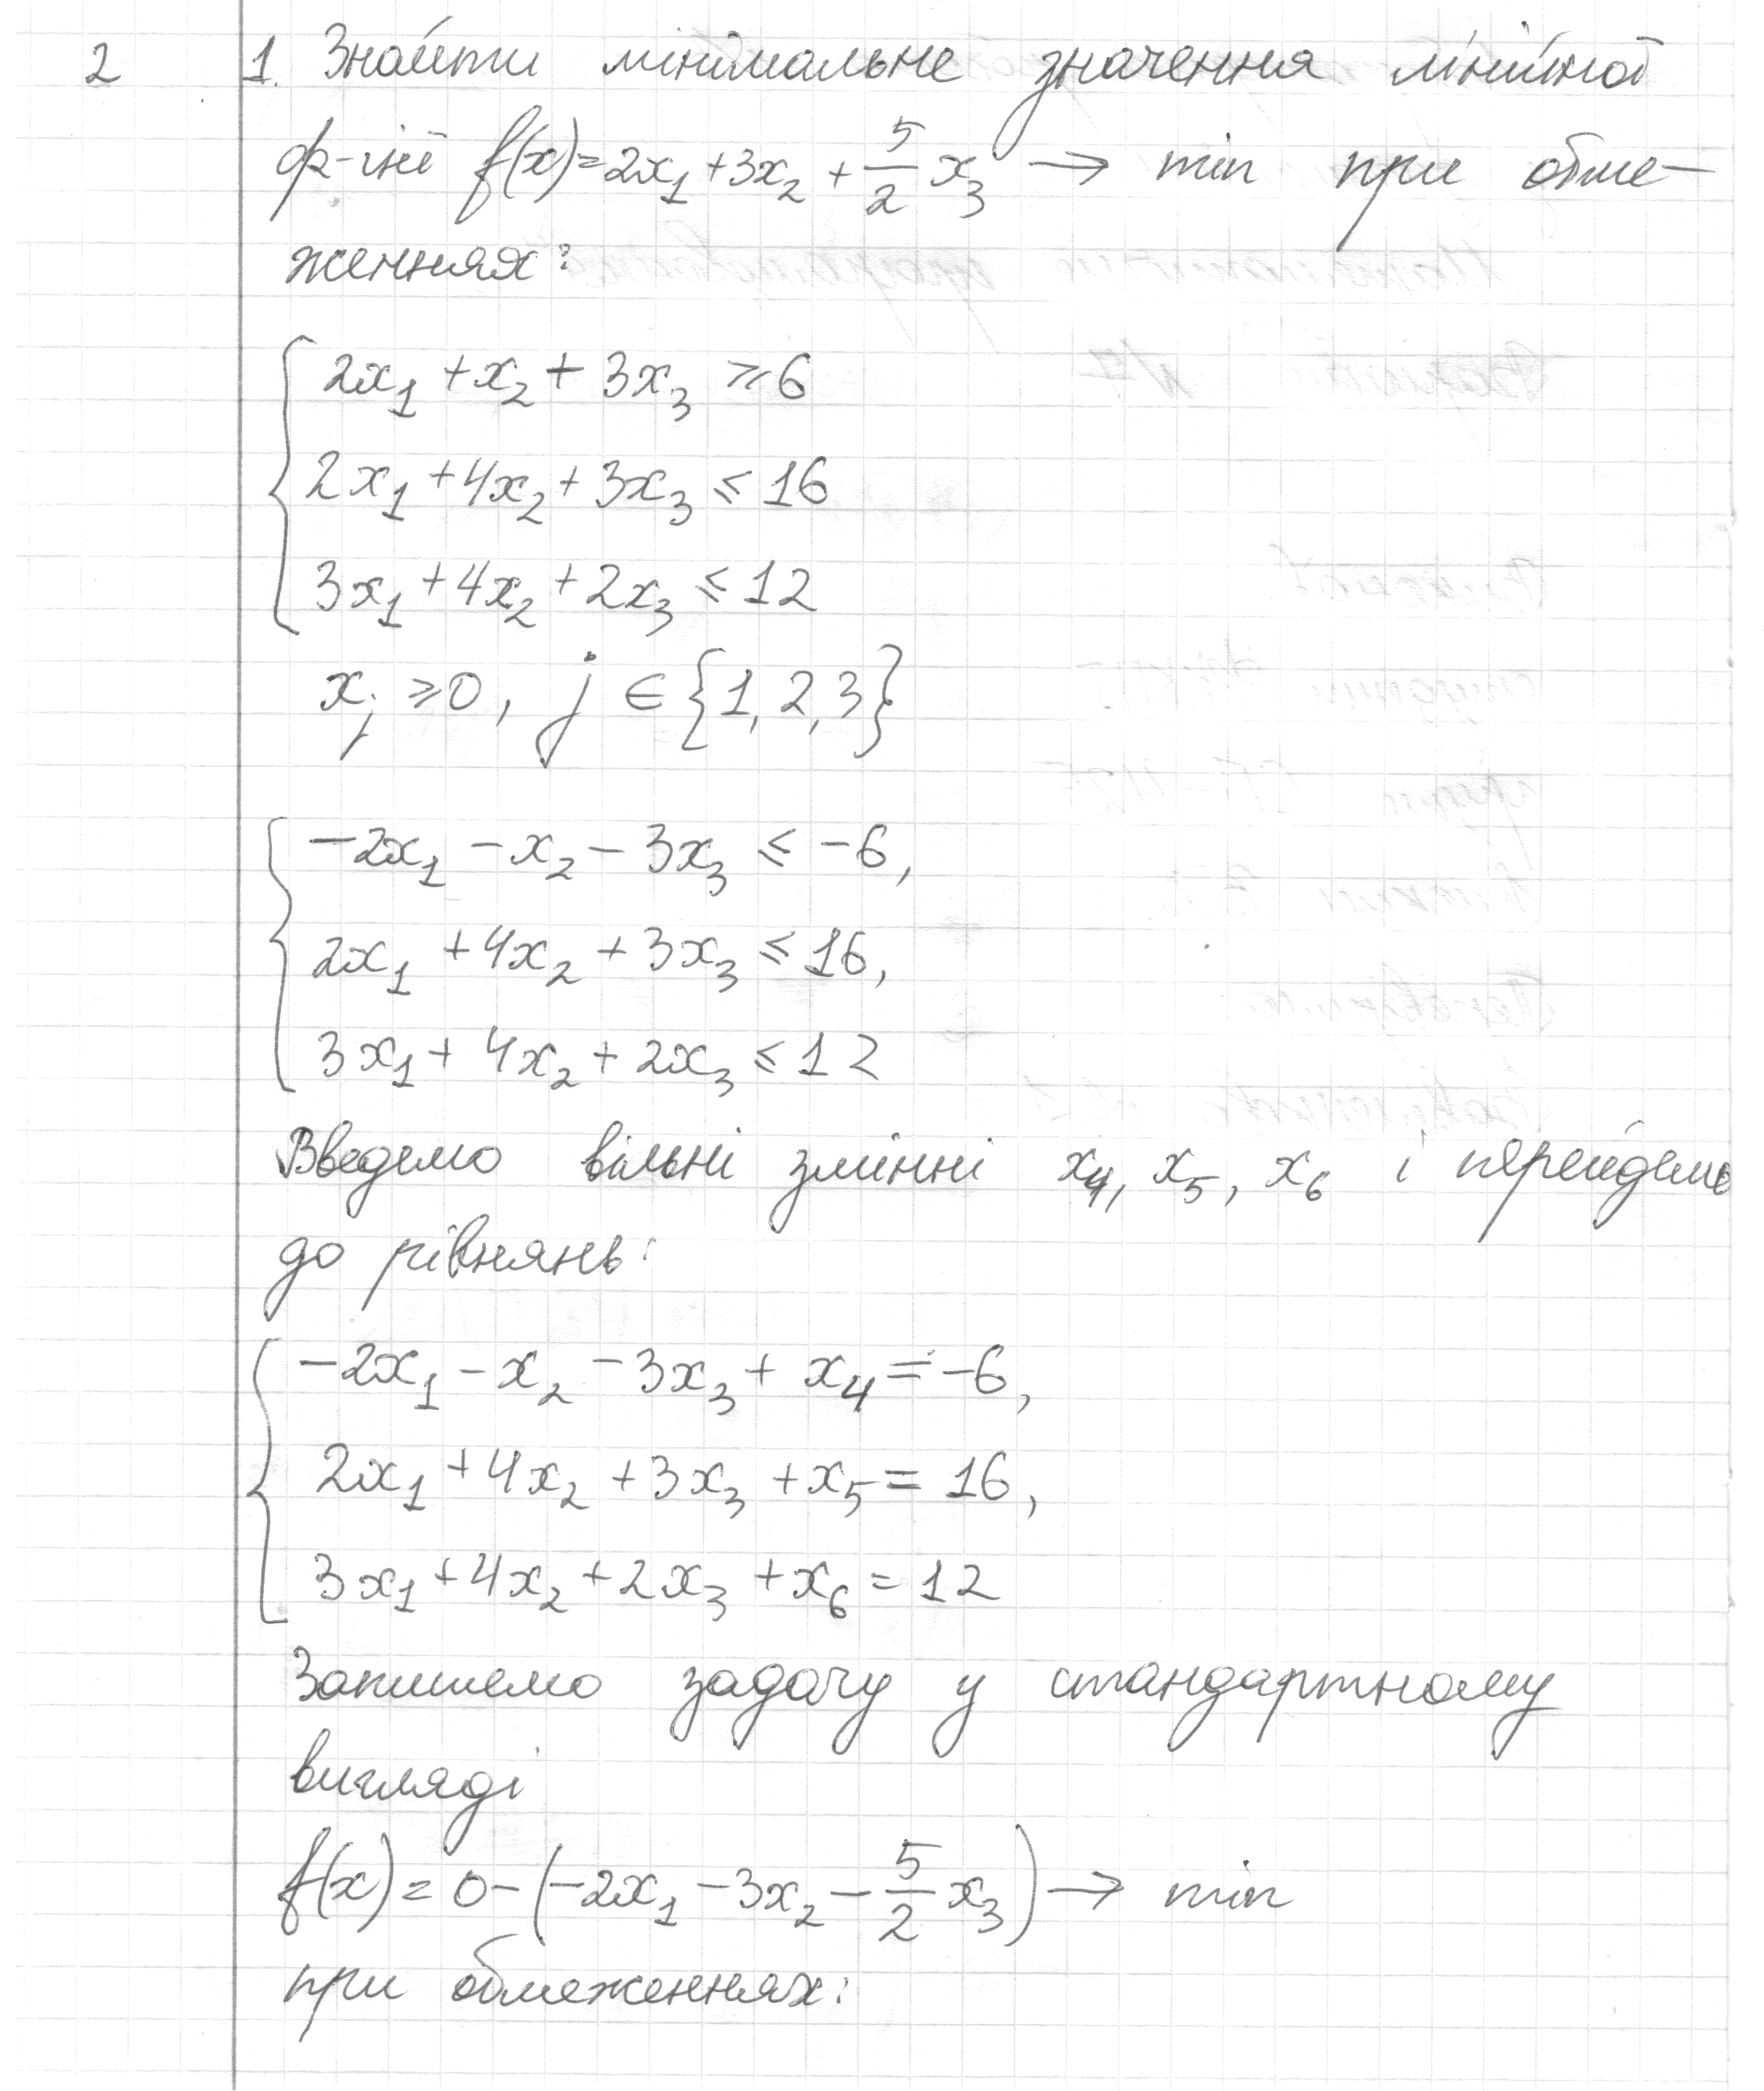 2
1. Знайти мінімальне значення лінійної
ф-ції f(x)=2x₁+3x₂+5/2 x₃ → min при обме-
женнях:
2x₁+x₂+3x₃ ≥ 6
2x₁+4x₂+3x₃ ≤ 16
3x₁+4x₂+2x₃ ≤ 12
xⱼ ≥ 0, j ∈ {1,2,3}
-2x₁ - x₂ - 3x₃ ≤ -6,
2x₁+4x₂+3x₃ ≤ 16,
3x₁+4x₂+2x₃ ≤ 12
Введемо вільні змінні x₄, x₅, x₆ і перейдемо
до рівнянь:
-2x₁ - x₂ - 3x₃ + x₄ = -6,
2x₁+4x₂+3x₃+x₅ = 16,
3x₁+4x₂+2x₃+x₆ = 12
Запишемо задачу у стандартному
вигляді
f(x) = 0-(-2x₁-3x₂-5/2 x₃) → min
при обмеженнях: